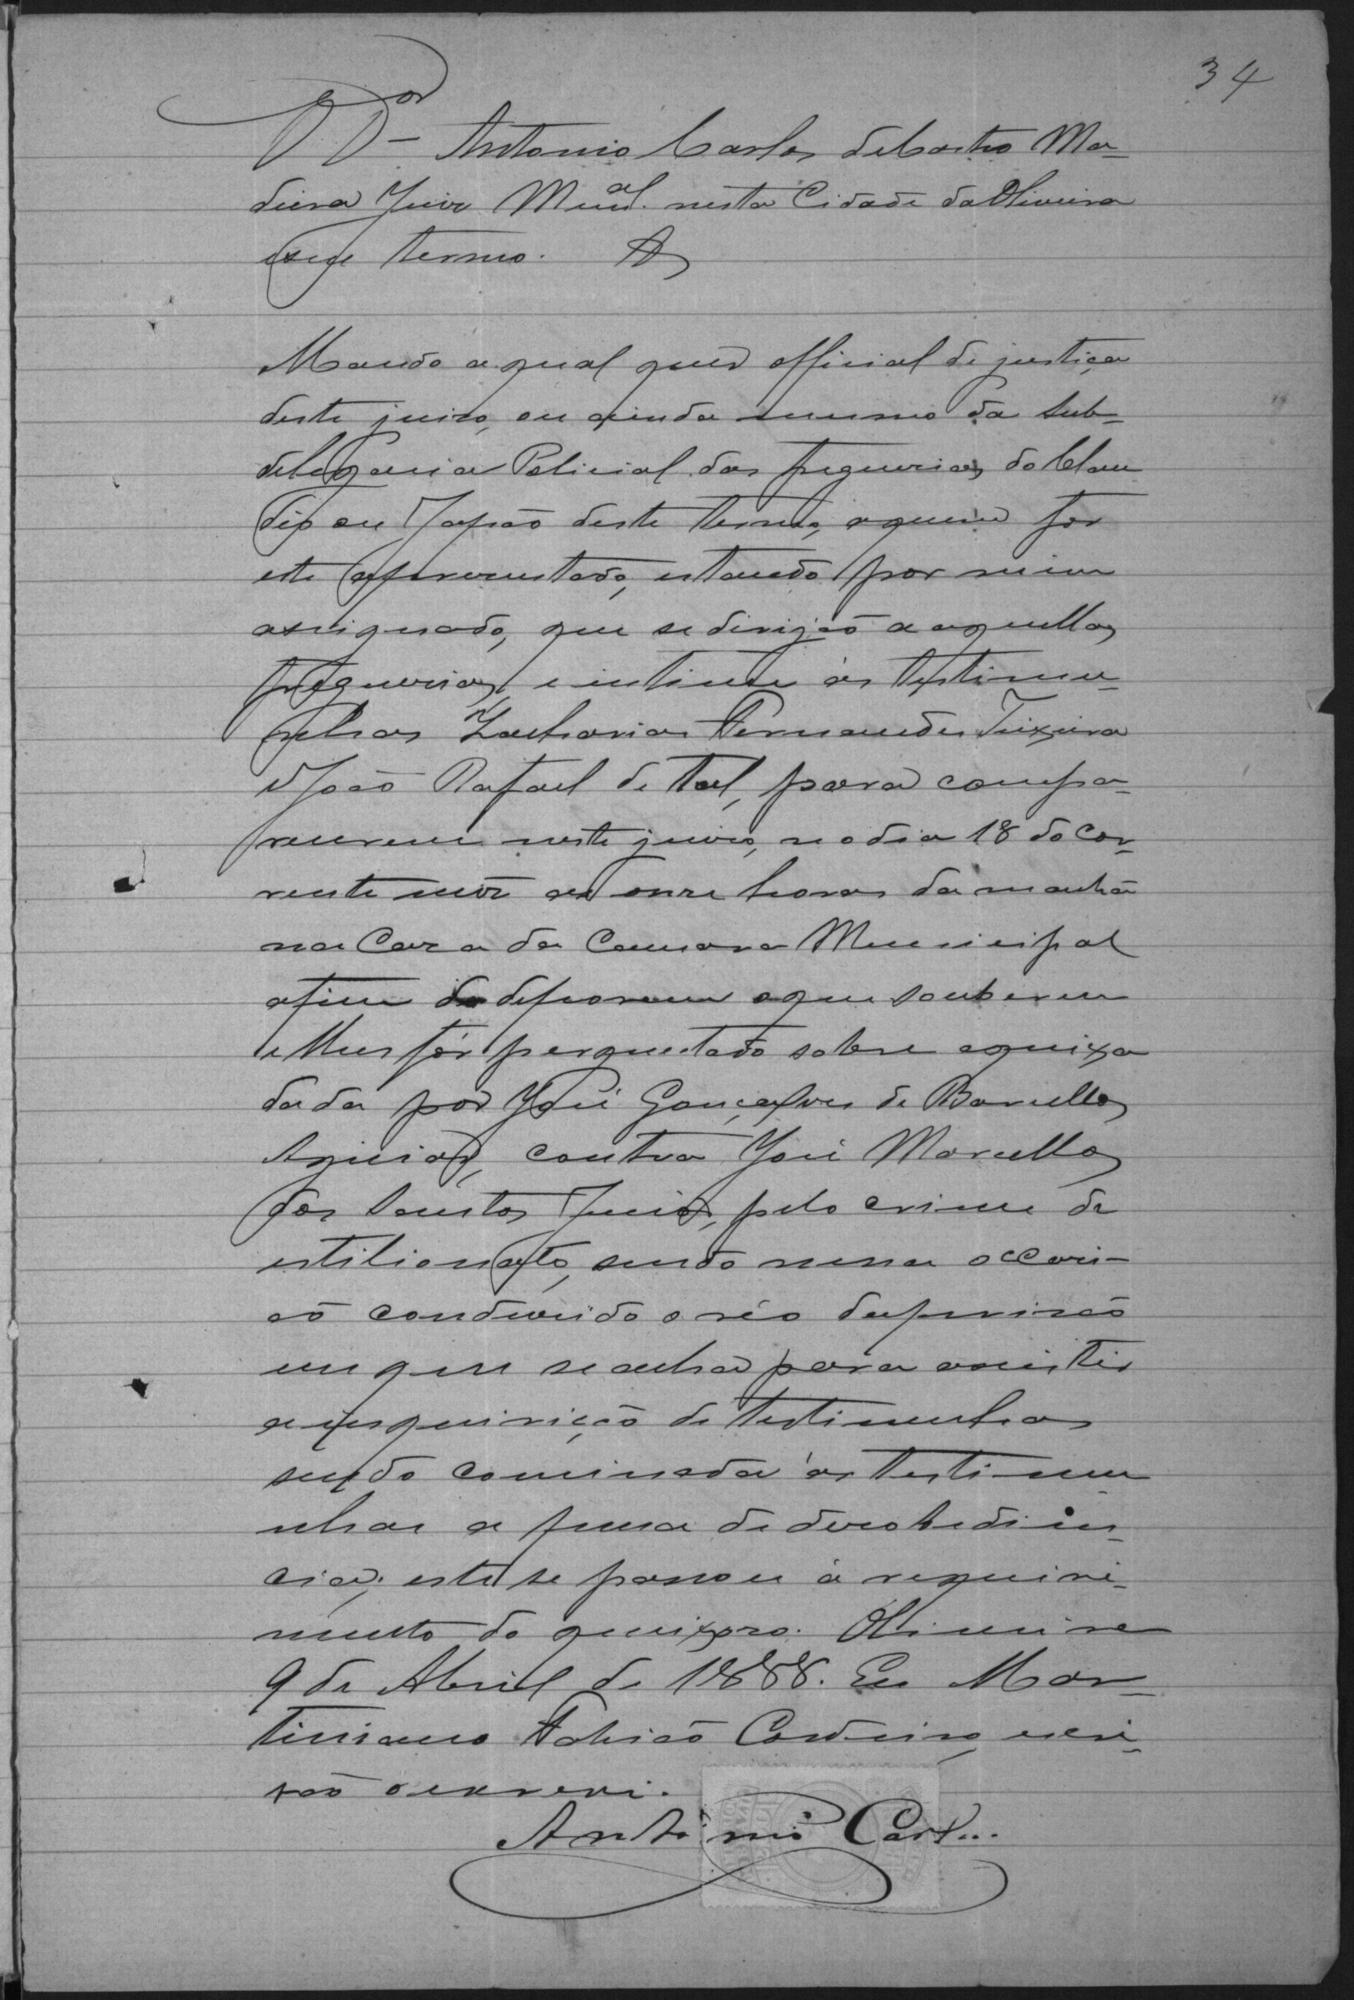 34
O Dor Antonio Carlos de Castro Ma-
deira Juiz Mcal. nesta Cidade da Oliveira
e seu termo. &
Mando a qual quer official de justiça
deste juizo, ou ainda mesmo da sub-
delegacia Policial das freguezias do Clau
dio ou Japão deste termo, a quem for
este apresentado, estando por mim
assignado, que se dirijão a aquellas
freguezias, e intime ás testimu-
nhas Zacharias Fernandes Teixeira
e João Rafael de tal, para compa-
recerem neste juizo, no dia 18 do cor-
rente mez as onze horas da manhã
na Caza da Camara Municipal
afim de deporem o que souberem
e lhes fôr perguntado sobre a queixa
dada por José Gonçalves de Barcellos
Aguiar, contra José Marcellos
dos Santos Junior, pelo crime de
estilionato, sendo nessa occazi-
ão conduzido o réo da prizão
em que se acha para assistir
a inquirição de testimunhas
sendo cominada ás testimu
nhas a pena de desobediên-
cia; este se passou á requiri-
mento do queixozo. Oliveira
9 de Abril de 1888. Eu Mar-
tiniano Fabião Cordeiro, escri-
vão o escrevi.
Antonio Carl...